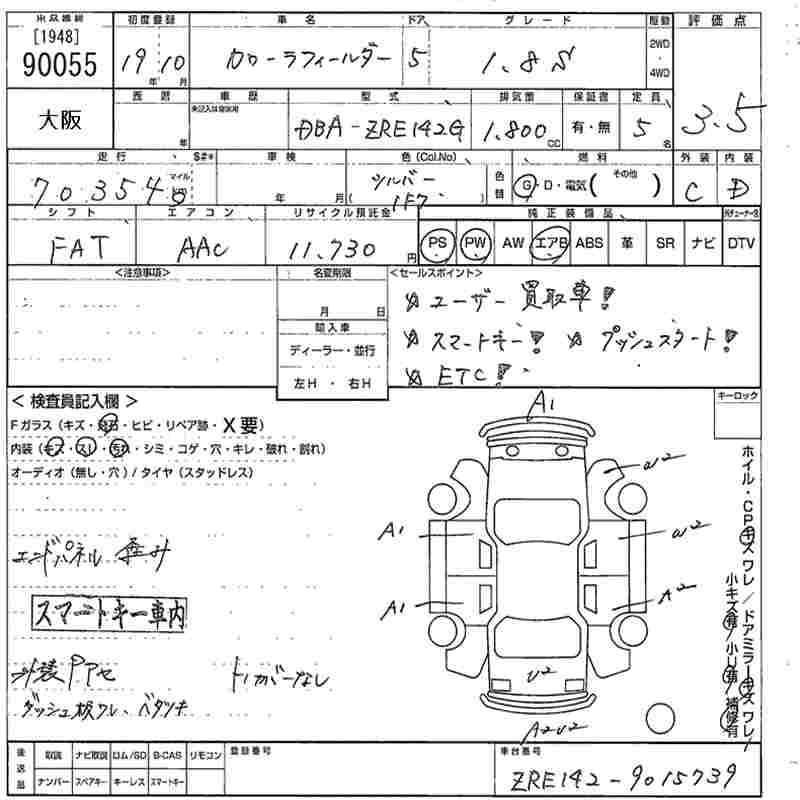 東京機構
[1948]
90055
大阪
初度登録 車名 ドア グレード 駆動 評価点
19年 10月 カローラフィールダー 5 1.8S 2WD・4WD 3.5
西暦 車歴 型式 排気量 保証書 定員
年 未記入は自家用 DBA-ZRE142G 1.800cc 有・無 5名
走行 $#* 車検 色(Col.No) 燃料 外装 内装
70354 マイル 年 月 シルバー (1F7 色替 G・D・電気( その他 ) C D
シフト エアコン リサイクル預託金 純正装備品
FAT AAC 11,730円 PS PW AW エアB ABS 革 SR ナビ DTV
<注意事項> 名変期限 <セールスポイント>
月 日
輸入車
ディーラー・並行
左H・右H
☆ ユーザー買取車!
☆ スマートキー! ☆ プッシュスタート!
☆ ETC!
<検査員記入欄> キーロック
Fガラス(キズ・飛石・ヒビ・リペア跡・X要)
内装(キズ・スレ・汚れ・シミ・コゲ・穴・キレ・破れ・割れ)
オーディオ(無し・穴)/タイヤ(スタッドレス)
エンドパネル 歪み
スマートキー車内
外装Pアセ トノカバーなし
ダッシュ板ワレ、ベタツキ
A1
U2
A1
U2
A1
A2
U2
A2U2
ホイル・CPキズワレ/ドアミラーキズワレ/
小キズ有/小U有/補修有
後送品 取説 ナビ取説 ロム/SD B-CAS リモコン 登録番号 車台番号
ナンバー スペアキー キーレス スマートキー ZRE142-9015739